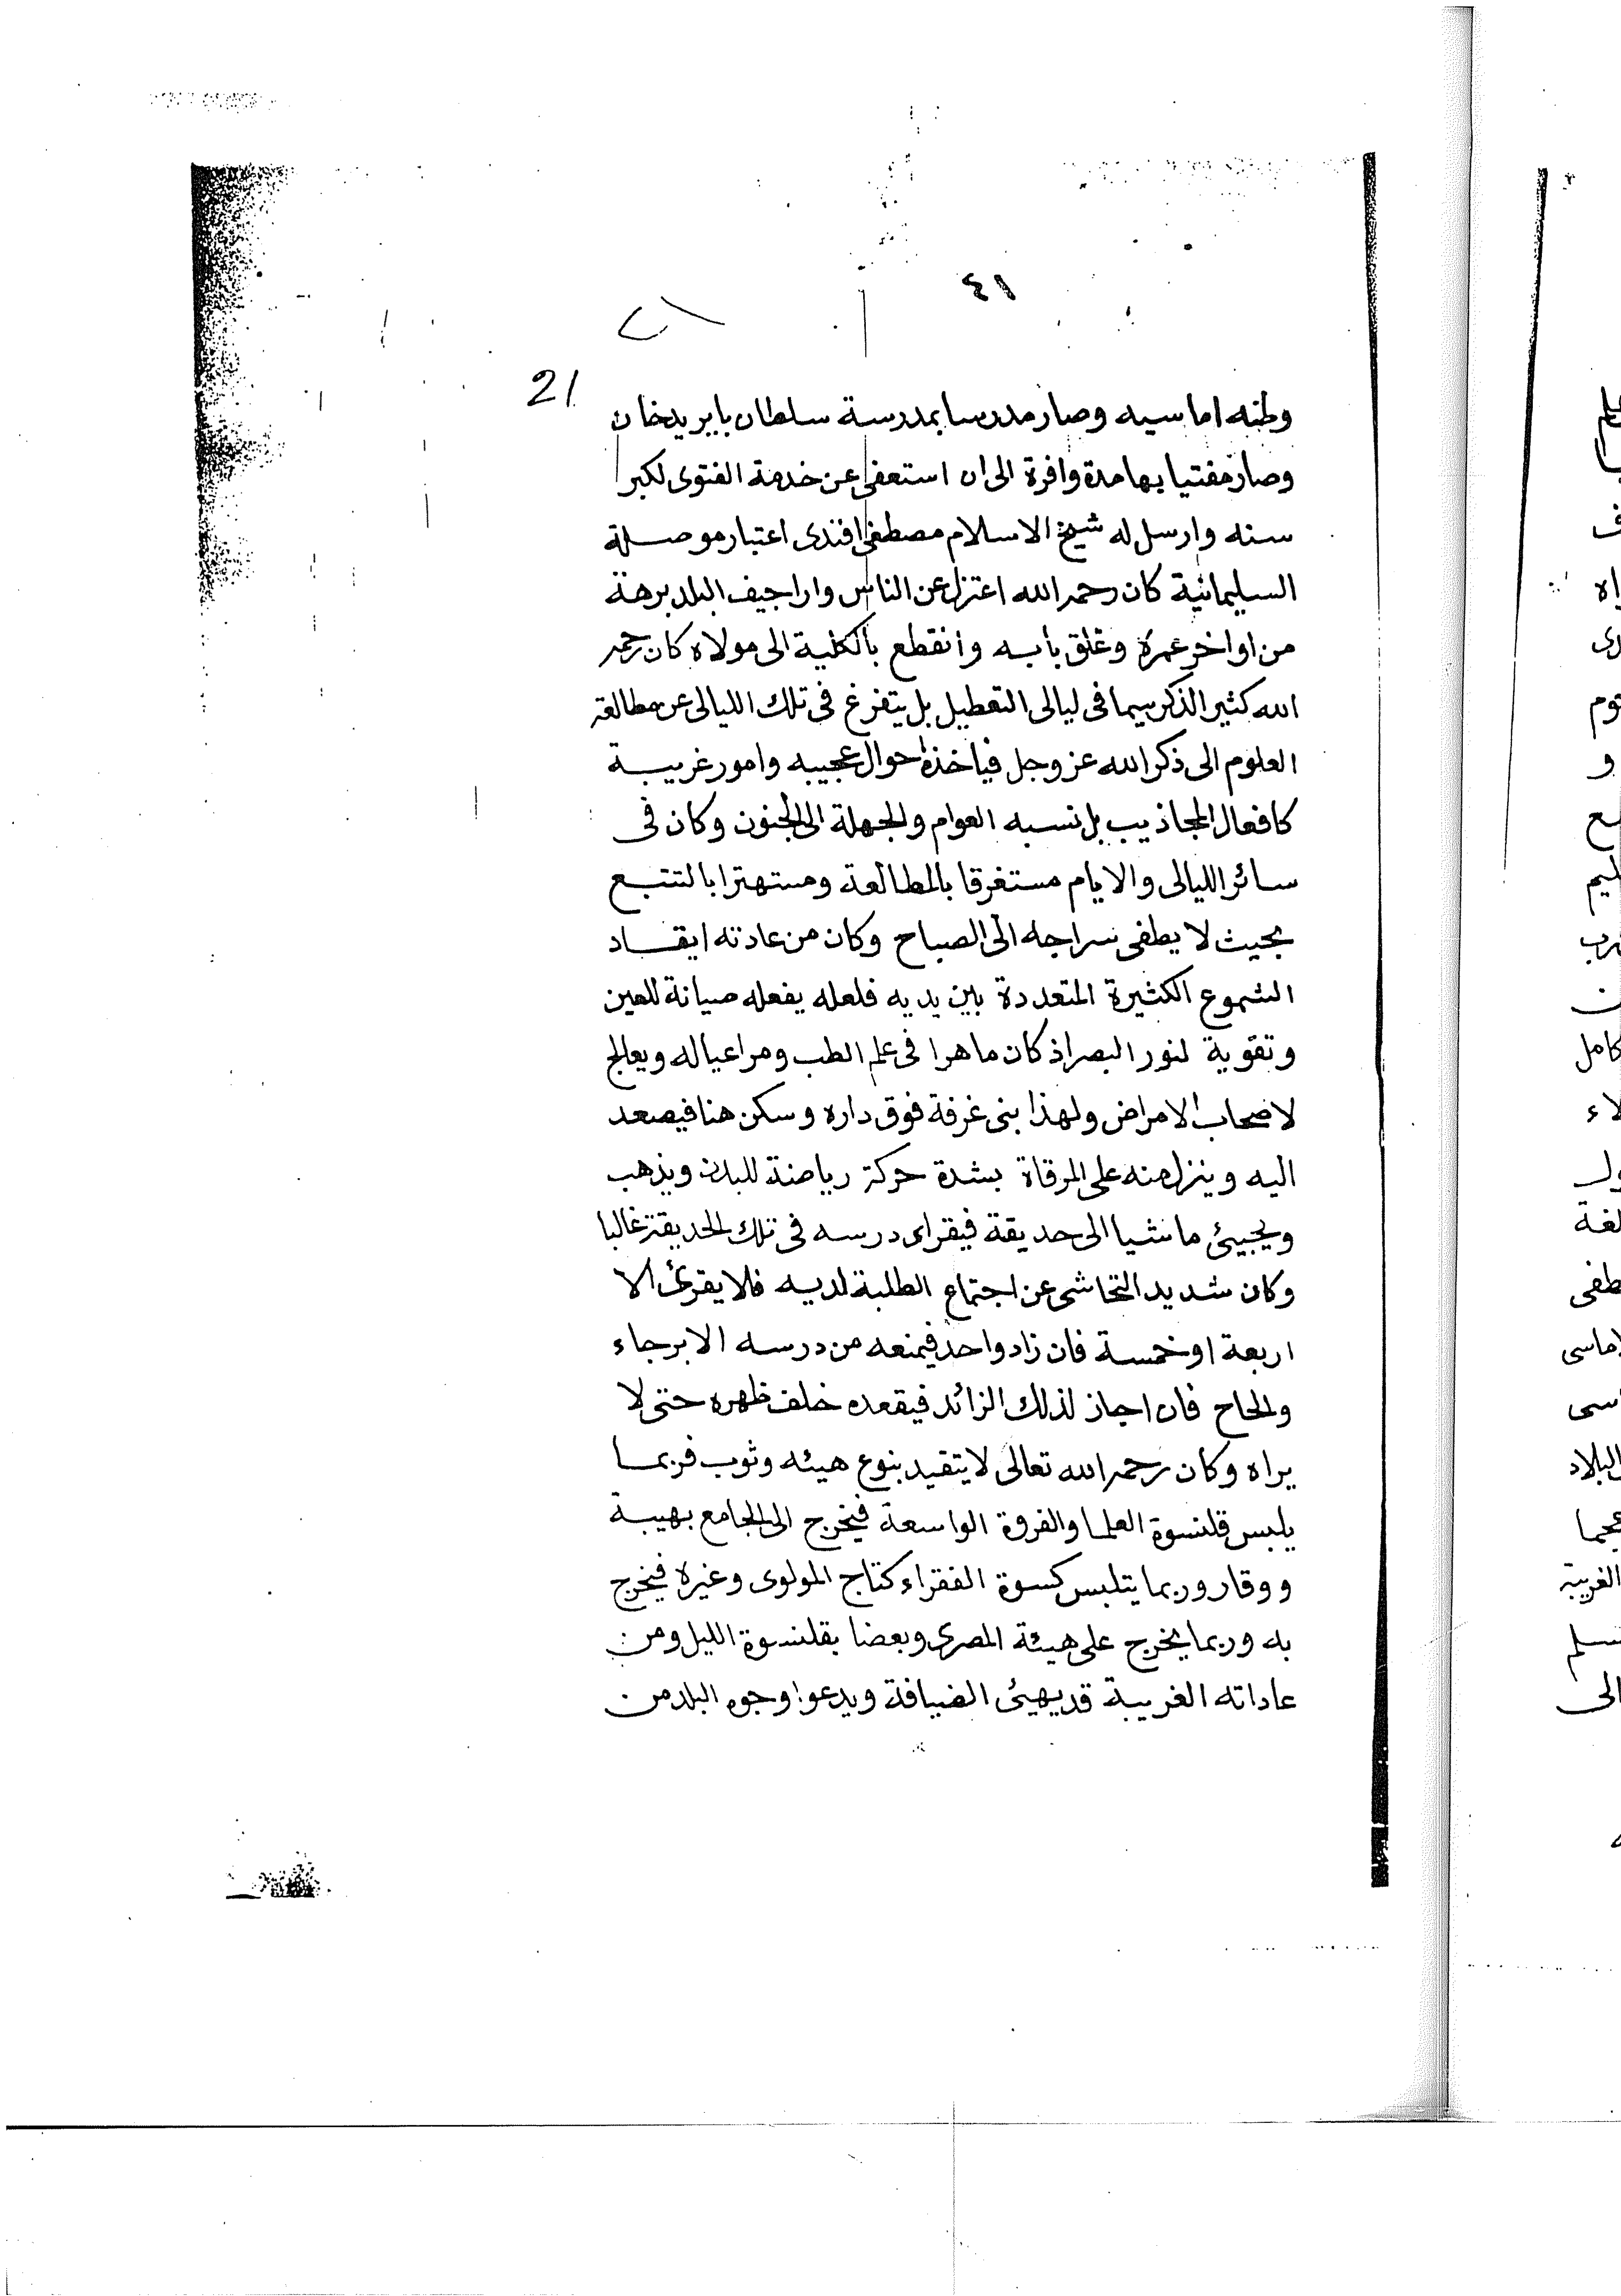 ٤١
21
وطنه اماسيه وصار مدرسا بمدرسة سلطان بايزيدخان
وصار مفتيا بها مدة وافرة الى ان استعفى عن خدمة الفتوى لكبر
سنه وارسل له شيخ الاسلام مصطفى افندى اعتبار موصلة
السليمانية كان رحمه الله اعتزل عن الناس واراجيف البلد برهة
من اواخر عمره وغلق بابه وانقطع بالكلية الى مولاه كان رحمه
الله كثير الذكر سيما فى ليالى التعطيل بل يتفرغ فى تلك الليالى عن مطالعة
العلوم الى ذكر الله عز وجل فياخذه احوال عجيبه وامور غريبة
كافعال المجاذيب بل نسبه العوام والجهلة الى الجنون وكان فى
سائر الليالى والايام مستغرقا بالمطالعة ومستهترا بالتتبع
بحيث لا يطفى سراجه الى الصباح وكان من عادته ايقاد
الشموع الكثيرة المتعددة بين يديه فلعله يفعله صيانة للعين
وتقوية لنور البصر اذ كان ماهرا فى علم الطب ومراعيا له ويعالج
لاصحاب الامراض ولهذا بنى غرفة فوق داره وسكن هنا فيصعد
اليه وينزل منه على المرقاة بشدة حركة رياضة للبدن ويذهب
ويجيئ ماشيا الى حديقة فيقراى درسه فى تلك الحديقة غالبا
وكان شديد التحاشى عن اجتماع الطلبة لديه فلا يقرئ الا
اربعة او خمسة فان زاد واحد فيمنعه من درسه الا برجاء
والحاح فان اجاز لذلك الزائد فيقعده خلف ظهره حتى لا
يراه وكان رحمه الله تعالى لا يتقيد بنوع هيئه وثوب فربما
يلبس قلنسوة العلما والفروة الواسعة فيخرج الى الجامع بهيبة
ووقار وربما يتلبس كسوة الفقراء كتاج المولوى وغيره فيخرج
به وربما يخرج على هيئة المصرى وبعضا بقلنسوة الليل ومن
عاداته الغريبة قد يهيئ الضيافة ويدعوا وجوه البلد من